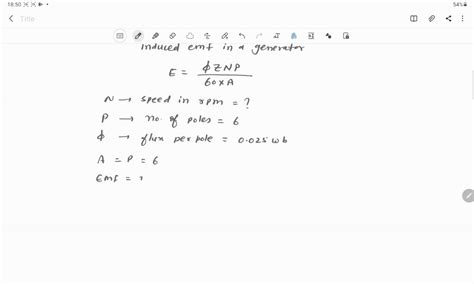 18:50
54%
Title
Induced emf in a generator
E = ϕZNP / 60×A
N → speed in rpm = ?
P → no. of poles = 6
ϕ → flux per pole = 0.025 wb
A = P = 6
Emf =